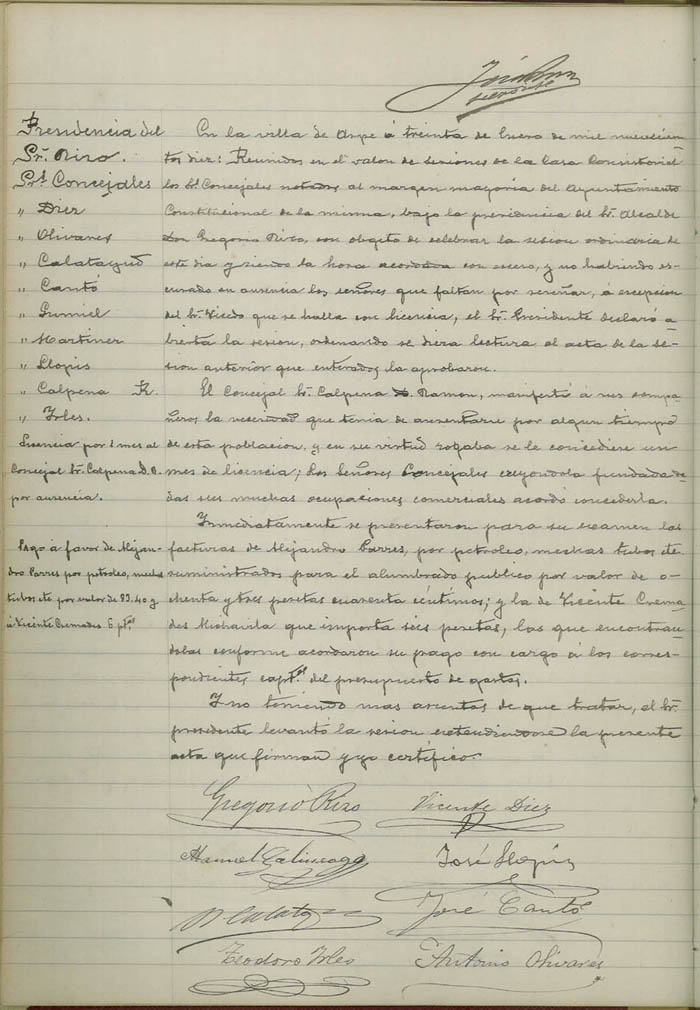 Presidencia del
Sr. Rizo.
Srs. Concejales
„ Diez
„ Olivares
„ Calatayud
„ Cantó
„ Gumiel
„ Martinez
„ Llopis
„ Calpena R.
„ Yrles.
Licencia por 1 mes al
Concejal Sr. Calpena D. R.
por ausencia.
Pago á favor de Alejan-
dro Parres por petroleo, mechas
tubos etc por valor de 83,40 y
á Vicente Cremades 6 ptas
En la villa de Aspe á treinta de Enero de mil novecien-
tos diez: Reunidos en el salon de sesiones de la Casa Consistorial
los Srs. Concejales notados al margen mayoria del Ayuntamiento
Constitucional de la misma, bajo la presidencia del Sr. Alcalde
Don Gregorio Rizo, con objeto de celebrar la sesion ordinaria de
este dia y siendo la hora acordada con exceso, y no habiendo es-
cusado su ausencia los señores que faltan por reseñar, á escepcion
del Sr. que se halla con licencia, el Sr. Presidente declaró a-
bierta la sesion, ordenando se diera lectura al acta de la se-
sion anterior que enterados la aprobaron.
El Concejal Sr. Calpena D. Ramon, manifestó á sus compa-
ñeros la necesidad que tenia de ausentarse por algun tiempo
de esta poblacion, y en su virtud rogaba se le concediese un
mes de licencia; los señores Concejales creyendola fundada da-
das sus muchas ocupaciones comerciales acordó concederla.
Inmediatamente se presentaron para su examen las
facturas de Alejandro Parres, por petroleo, mechas tubos etc.
suministrados para el alumbrado publico por valor de o-
chenta y tres pesetas cuarenta céntimos; y la de Vicente Crema-
des Mishavila que importa séis pesetas, las que encontran-
dolas conforme acordaron su pago con cargo á los corres-
pondientes captos. del presupuesto de gastos.
Y no teniendo mas asuntos de que tratar, el Sr.
presidente levantó la sesion estendiendose la presente
acta que firman y yo certifico.
Gregorio Rizo Vicente Diez
Manuel José Llopis
Calatayud José Cantó
Teodoro Yrles Antonio Olivares